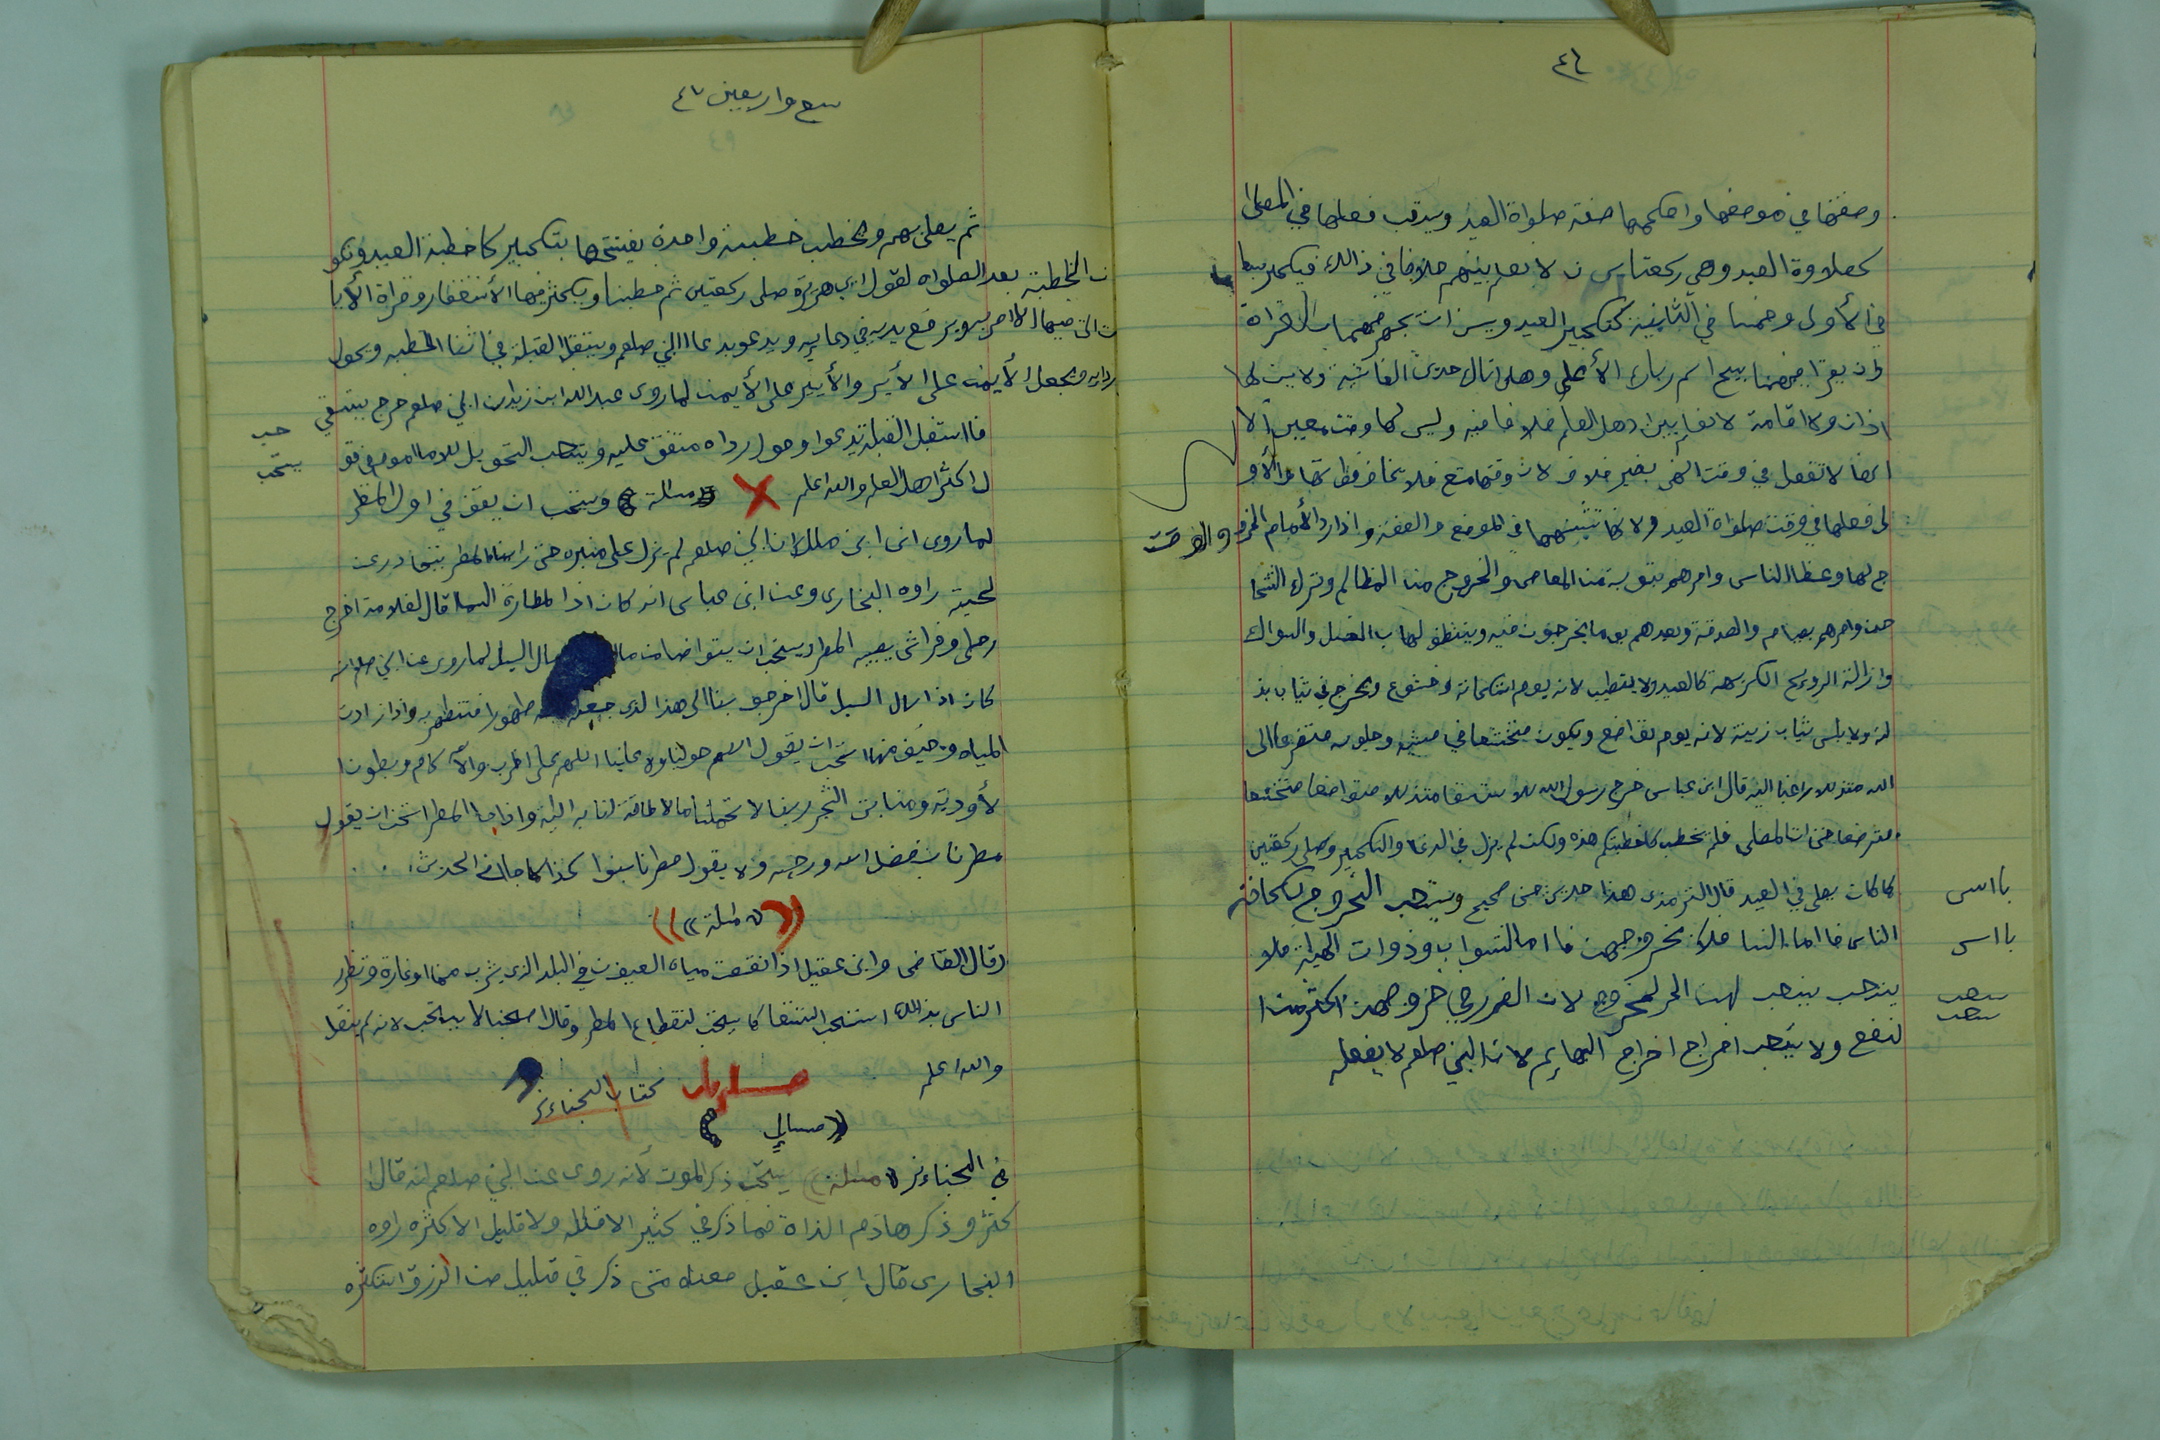 ٤٦
وصفتها في موضعها واحكامها صفة صلواة العيد ويستحب فعلها في المصلا
كصلاوة العيد وهي ركعتاين لا نعلم بينهم خلافا في ذالك فيكبر سبعا
في الأولى وخمسا في الثانية كتكبير العيد ويسن ان يجهر فيهما بالقراة
وان يقرا فيهما بسبح اسم ربك الأعلى وهل اتاك حديث الغاشية ولا يسن لها
اذان ولا اقامة لا نعلم بين اهل العلم خلافا فيه وليس لها وقت معين الا
انها لا تفعل في وقت النهي بغير خلاف لان وقتها متسع فلا يخاف فوتها والأو
لى فعلها في وقت صلواة العيد ولانها تشبهها في الموضع والصفة واذا اراد الأمام الخرو
ج لها وعظ الناس وامرهم بتوبة من المعاصي والخروج من المظالم وترك التشا
حن وامرهم بصيام والصدقة ويعدهم يوما يخرجون فيه ويتنظف لها بالغسل والسواك
وازالة الروايح الكريهة كالعيد ولا يتطيب لانه يوم استكانة وخشوع ويخرج في ثياب بذ
لة ولا يلبس ثياب زينة لانه يوم تواضع ويكون متخشعا في مشيه وجلوسه متضرعا الى
الله متذللا راغبا اليه قال ابن عباس خرج رسول الله للاستسقا متذللا متواضعا متخشعا
متضرعا حتى اتا المصلى فلم يخطب كخطبتكم هذه ولكن لم يزل في الدعا والتكبير وصلى ركعتين
كما كان يصلي في العيد قال الترمذي هذا حديث حسن صحيح ويستحب الخروج لكافة
الناس فااما النسا فلا خروجهن فااما الشواب وذوات الهيئة فلا
يستحب لهن الخروج لان الضرر في خروجهن اكثر من ا
لنفع ولا يستحب اخراج البهايم لان النبي صلعم لا يفعله
بااس
بااس
ستحب
ستحب
سبع واربعين ٤٧
ثم يصلي بهم ويخطب خطبة واحدة يفتتحها بتكبير كاخطبة العيد وتكو
ن الخطبة بعد الصلواه لقول ابي هريرة صلى ركعتين ثم خطبنا ويكثر فيها الأستغفار وقراة الأيا
ت التي فيها الامر به ويرفع يديه في دعايه ويدعو بدعا النبي صلعم ويستقبل القبلة في اثنا الخطبه ويحول
ردايه فيجعل الأيمن على الأيسر والأيسر على الأيمن لما روى عبدالله ابن زيد ان النبي صلعم خرج يستسقي
فااستقبل القبلة يدعوا وحول رداه متفق عليه ويستحب التحويل للامام والماموم في قو
ل اكثر اهل العلم والله اعلم مسئلة ويستحب ان يقف في اول المطر
لما روى انس ابن ملك ان النبي صلعم لم ينزل على منبره حتى راينا المطر يتحادر عن
لحيته راوه البخاري وعن ابن عباس انه كان اذا امطارة السما قال لغلامه اخرج
رحلي وفراشي يصيبه المطر ويستحب ان يتوا ضا من ما سال السيل لما روى عن النبي صلعم انه
كان اذا سال السيل قال اخرجو بنا الى هذا الذي جعله طهورا فنتطهر به واذا زادت
المياه وخيف منها استحب ان يقول اللهم حولينا ولا علينا اللهم على الظرب والأكام وبطون ا
لأودية ومنابت الشجر ربنا لا تحملنا ما لا طاقة لنا به الية واذا جا المطر استحب ان يقول
مطرنا بفضل الله ورحمته ولا يقول مطرنا بنوا كذا كما جا في الحديث
مسئلة
وقال القاضي وابن عقيل اذا نقصت مياه العيون في البلد الذي يشرب منها او غارة وتضرر
الناس بذالك استحب الستسقا كما يستحب لنقطاع المطر وقال اصحابنا لا يستحب لانه لم ينقل
والله اعلم
كتاب الجناءيز
مسايل
في الجناءيز مسئلة يستحب ذكر الموت لأنه روى عن النبي صلعم انه قال ا
كثرو ذكر هادم الذاة فما ذكر في كثير الا قلله ولا قليل الا كثره راوه
البخاري قال ابن عقيل معناه متى ذكر في قليل من الزرق استكثره
حب
يستحب